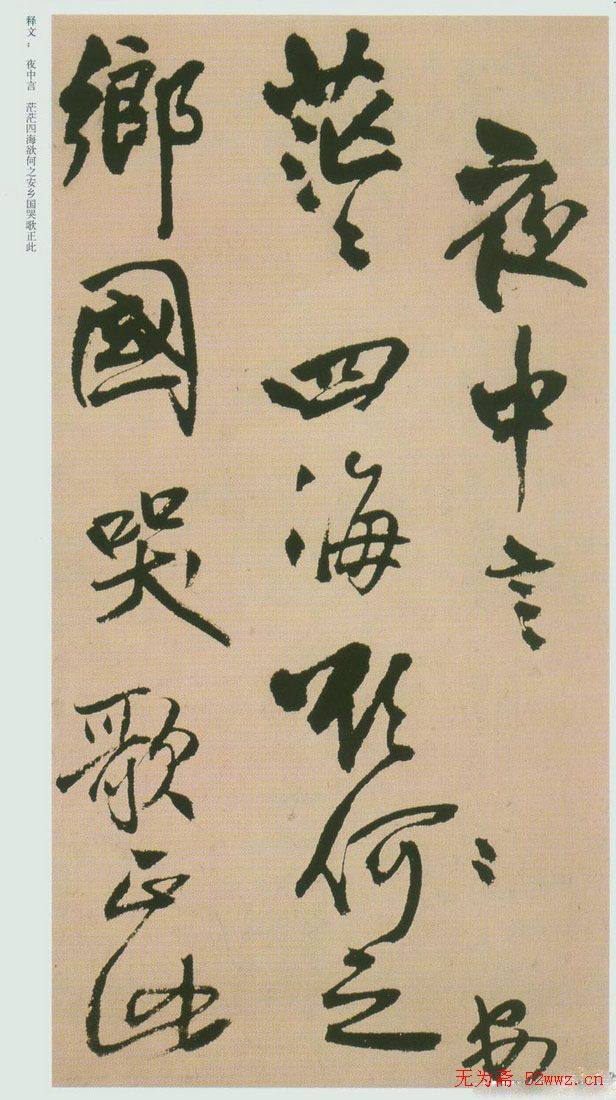 夜中言
〻安
茫〻四海欲何之
鄉國哭歌正此
释文： 夜中言 茫茫四海欲何之安乡国哭歌正此
无为斋 52wwz.cn